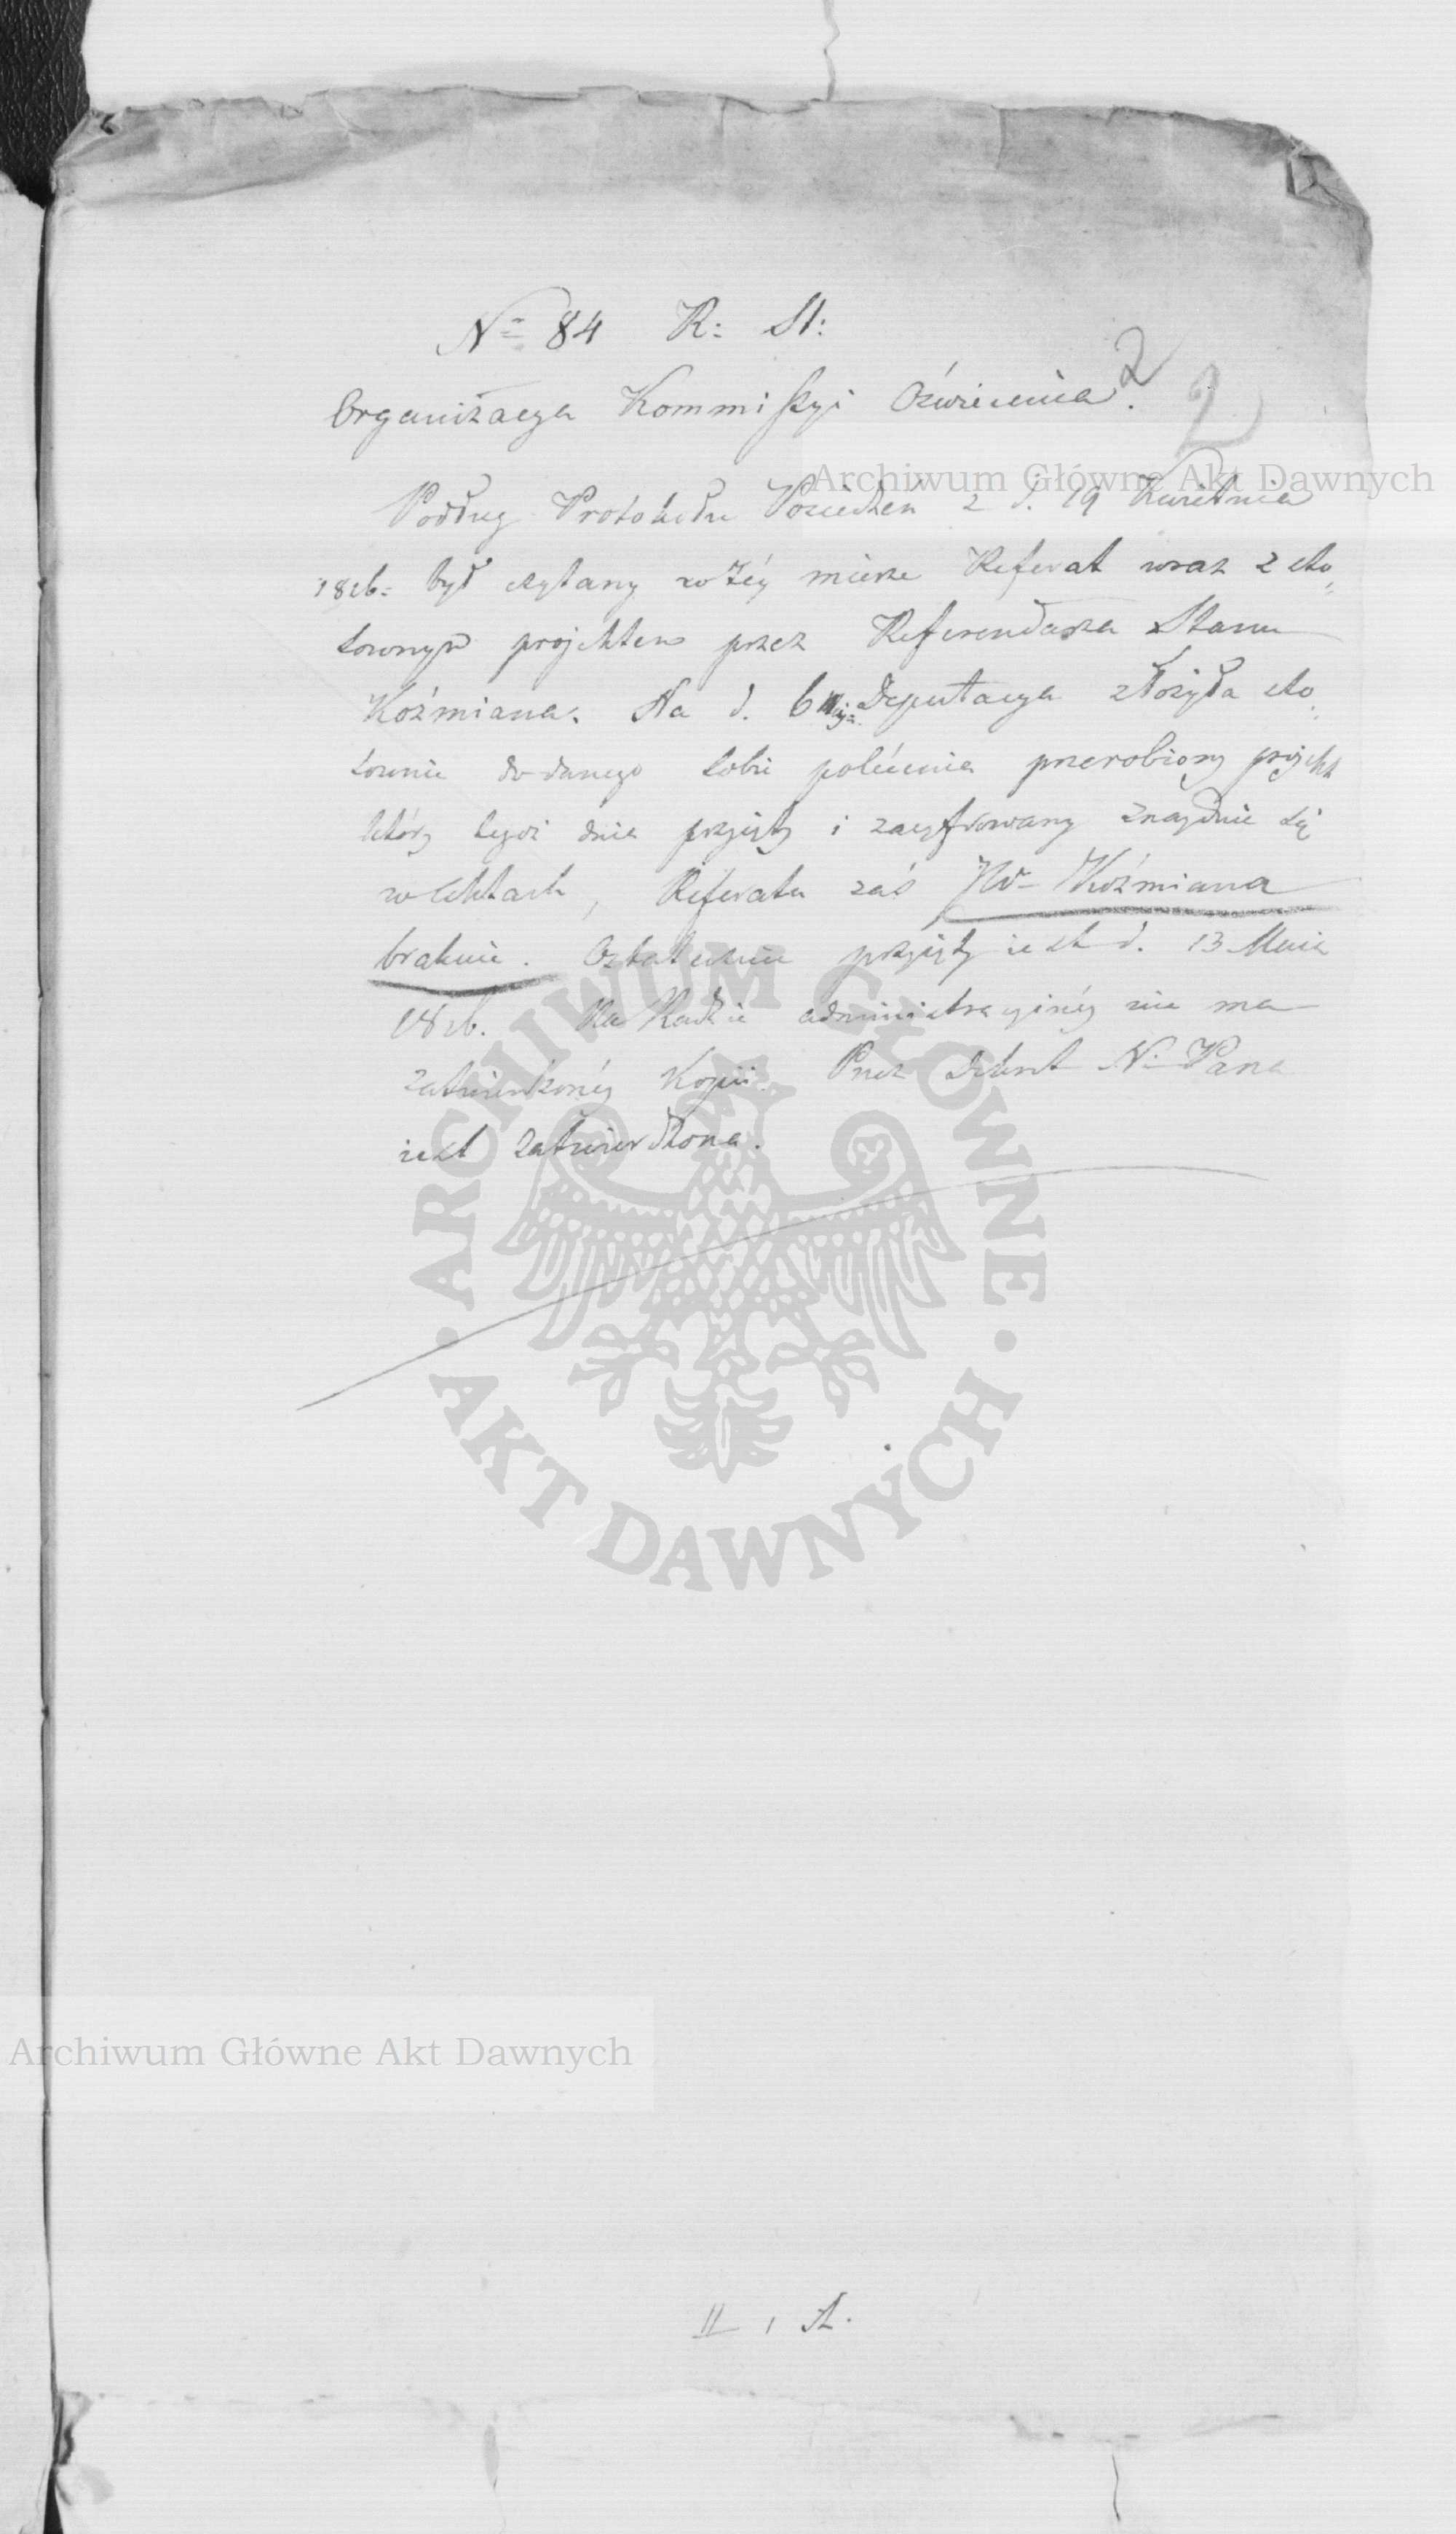 Nº 84 R: St:
Organizacya Kommissyi Oświecenia.
2
2
Archiwum Główne Akt Dawnych
Podług Protokułu Posiedzeń z d. 19 Kwietnia
1816= był czytany w téy mierze Referat wraz z sto„
sownym projektem przez Referendarza Stanu
Koźmiana. Na d. 6 Deputacya złożyła sto„
sownie do danego sobie polécenia przerobiony projekt
który tegoż dnia przyięty i zacyfrowany znayduie się
w Aktach, Referatu zaś JW= Koźmiana
brakuie. Ostatecznie przyięty iest d. 13 Maia
1816. Na Radzie administracyinéy nie ma
zatwierdzonéy Kopii. Przez Dekret N= Pana
iest zatwierdzona.
ARCHIWUM GŁÓWNE
AKT DAWNYCH
Archiwum Główne Akt Dawnych
II , A.